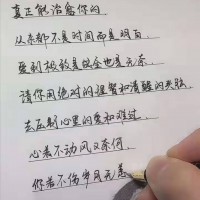 真正能治愈你的
从来都不是时间而是明白
要到极致是体会也是无奈
请你用绝对的理智和清醒的头脑
去压制心里的爱和难过
心若不动风又奈何
你若不伤岁月无恙